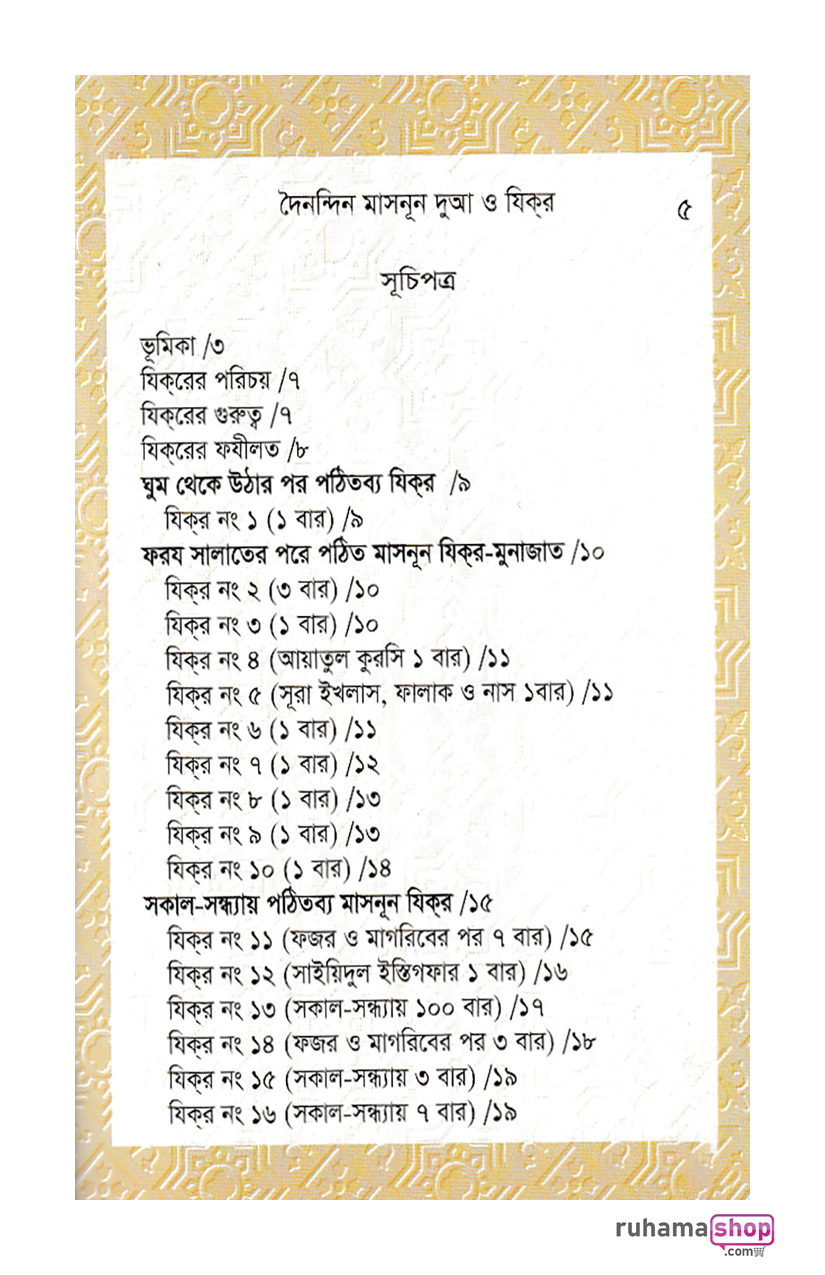 দৈনন্দিন মাসনূন দুআ ও যিক্‌র ৫
সূচিপত্র
ভূমিকা /৩
যিক্‌রের পরিচয় /৭
যিক্‌রের গুরুত্ব /৭
যিক্‌রের ফযীলত /৮
ঘুম থেকে উঠার পর পঠিতব্য যিক্‌র /৯
যিক্‌র নং ১ (১ বার) /৯
ফরয সালাতের পরে পঠিত মাসনূন যিক্‌র-মুনাজাত /১০
যিক্‌র নং ২ (৩ বার) /১০
যিক্‌র নং ৩ (১ বার) /১০
যিক্‌র নং ৪ (আয়াতুল কুরসি ১ বার) /১১
যিক্‌র নং ৫ (সূরা ইখলাস, ফালাক ও নাস ১বার) /১১
যিক্‌র নং ৬ (১ বার) /১১
যিক্‌র নং ৭ (১ বার) /১২
যিক্‌র নং ৮ (১ বার) /১৩
যিক্‌র নং ৯ (১ বার) /১৩
যিক্‌র নং ১০ (১ বার) /১৪
সকাল-সন্ধ্যায় পঠিতব্য মাসনূন যিক্‌র /১৫
যিক্‌র নং ১১ (ফজর ও মাগরিবের পর ৭ বার) /১৫
যিক্‌র নং ১২ (সাইয়িদুল ইস্তিগফার ১ বার) /১৬
যিক্‌র নং ১৩ (সকাল-সন্ধ্যায় ১০০ বার) /১৭
যিক্‌র নং ১৪ (ফজর ও মাগরিবের পর ৩ বার) /১৮
যিক্‌র নং ১৫ (সকাল-সন্ধ্যায় ৩ বার) /১৯
যিক্‌র নং ১৬ (সকাল-সন্ধ্যায় ৭ বার) /১৯
ruhamashop
.com